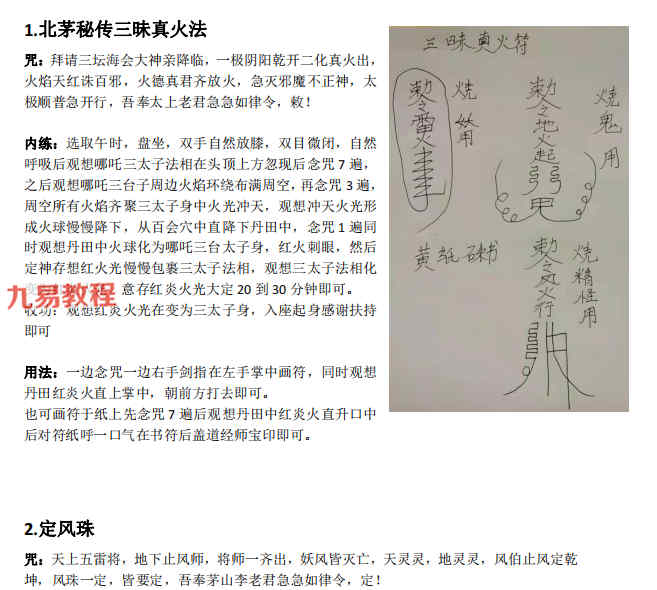 1.北茅秘传三昧真火法
咒：拜请三坛海会大神亲降临，一极阴阳乾开二化真火出，
火焰天红诛百邪，火德真君齐放火，急灭邪魔不正神，太
极顺普急开行，吾奉太上老君急急如律令，敕！
内练：选取午时，盘坐，双手自然放膝，双目微闭，自然
呼吸后观想哪吒三太子法相在头顶上方忽现后念咒 7 遍，
之后观想哪吒三台子周边火焰环绕布满周空，再念咒 3 遍，
周空所有火焰齐聚三太子身中火光冲天，观想冲天火光形
成火球慢慢降下，从百会穴中直降下丹田中，念咒 1 遍同
时观想丹田中火球化为哪吒三台太子身，红火刺眼，然后
定神存想红火光慢慢包裹三太子法相，观想三太子法相化
意存红炎火光大定 20 到 30 分钟即可。
收功：观想红炎火光在变为三太子身，入座起身感谢扶持
即可
九易教程
用法：一边念咒一边右手剑指在左手掌中画符，同时观想
丹田红炎火直上掌中，朝前方打去即可。
也可画符于纸上先念咒 7 遍后观想丹田中红炎火直升口中
后对符纸呼一口气在书符后盖道经师宝印即可。
三昧真火符
敕令雷火
烧妖用
敕令地火起
烧鬼用
黄纸硃书
敕令风火行
烧精怪用
2.定风珠
咒：天上五雷将，地下止风师，将师一齐出，妖风皆灭亡，天灵灵，地灵灵，风伯止风定乾
坤，风珠一定，皆要定，吾奉茅山李老君急急如律令，定！